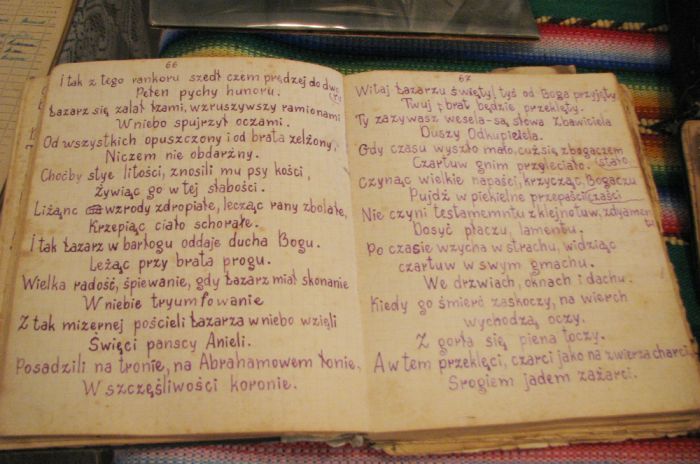 66
I tak z tego rankoru szedł czem prędzej do dwo
ru
Pełen pychy humoru.
Łazarz się zalał łzami, wzruszywszy ramionami
W niebo spujrzył oczami.
Od wszystkich opuszczony i od brata zelżony,
Niczem nie obdarżny.
Choćby stye litości, znosili mu psy kości,
Żywiąc go w tej słabości.
Liżąnc wzrody zdropiałe, lecząc rany zbolałe,
Krzepiąc ciało schorałe.
I tak Łazarz w barłogu oddaje ducha Bogu.
Leżąc przy brata progu.
Wielka radość, śpiewanie, gdy Łazarz miał skonanie
W niebie tryumfowanie
Z tak mizernej pościeli Łazarza w niebo wzięli
Święci panscy Anieli.
Posadzili na tronie, na Abrahamowem łonie,
W szczęśliwości koronie.
67
Witaj Łazarzu święty, tyś od Boga przyjęty
Twuj brat będzie przeklęty.
Ty zażywasz wesela-są słowa Zbawiciela
Duszy Odkupielela.
Gdy czasu wyszło mało, cuż się z bogaczem
stało
Czartuw gnim przyleciało.
Czynąc wielkie napaści, krzycząc, Bogaczu
Pujdź w piekielne przepaści
Nie czyni testamemntu z klejnotuw,
Dosyć płaczu, lamentu.
Po czasie wzycha w strachu, widziąc
czartuw w swym gmachu.
We drzwiach, oknach i dachu.
Kiedy go śmierć zaskoczy, na wierch
wychodzą oczy.
Z gorła się piena toczy.
A w tem przeklęci, czarci jako na zwierza charci
Srogiem jadem zażarci.